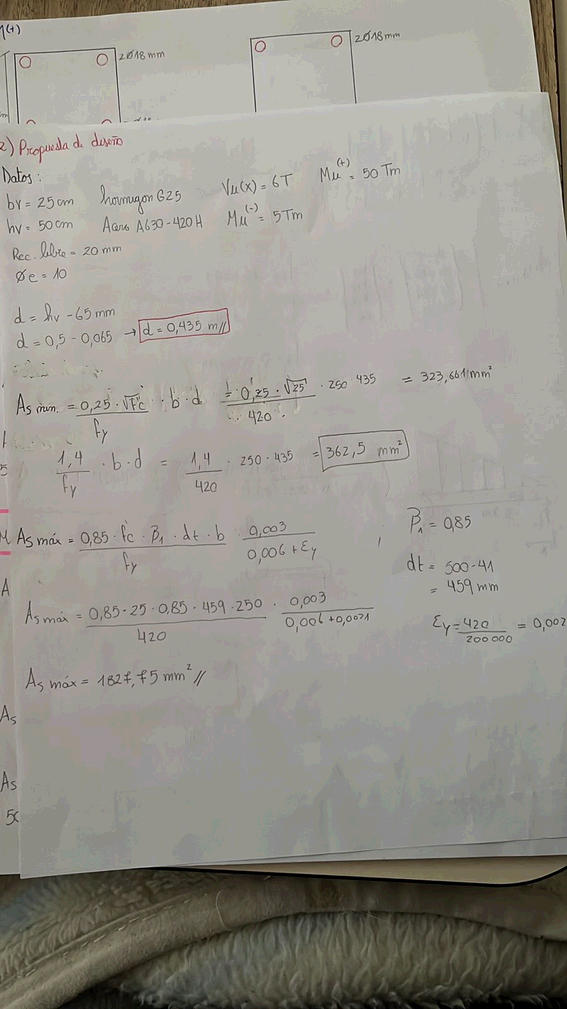 (+)
2Ø18mm
2Ø18mm
2) Propuesta de diseño
Datos:
bv = 25cm hormigon G25 Vu(x) = 6T Mu(+) = 50 Tm
hv = 50cm Acero A630-420H Mu(-) = 5Tm
Rec. libre = 20 mm
Øe = 10
d = hv - 65mm
d = 0,5 - 0,065 → d = 0,435 m//
As min. = 0,25 · √f'c / fy · b · d = 0,25 · √25 / 420 · 250 · 435 = 323,661 mm²
1,4 / fy · b · d = 1,4 / 420 · 250 · 435 = 362,5 mm²
As máx = 0,85 · f'c · β1 · dt · b / fy · 0,003 / 0,006 + εy , β1 = 0,85
dt = 500-41
= 459 mm
As máx = 0,85 · 25 · 0,85 · 459 · 250 / 420 · 0,003 / 0,006 + 0,0021
εy = 420 / 200 000 = 0,002
As máx = 1827,75 mm² //
A
As
As